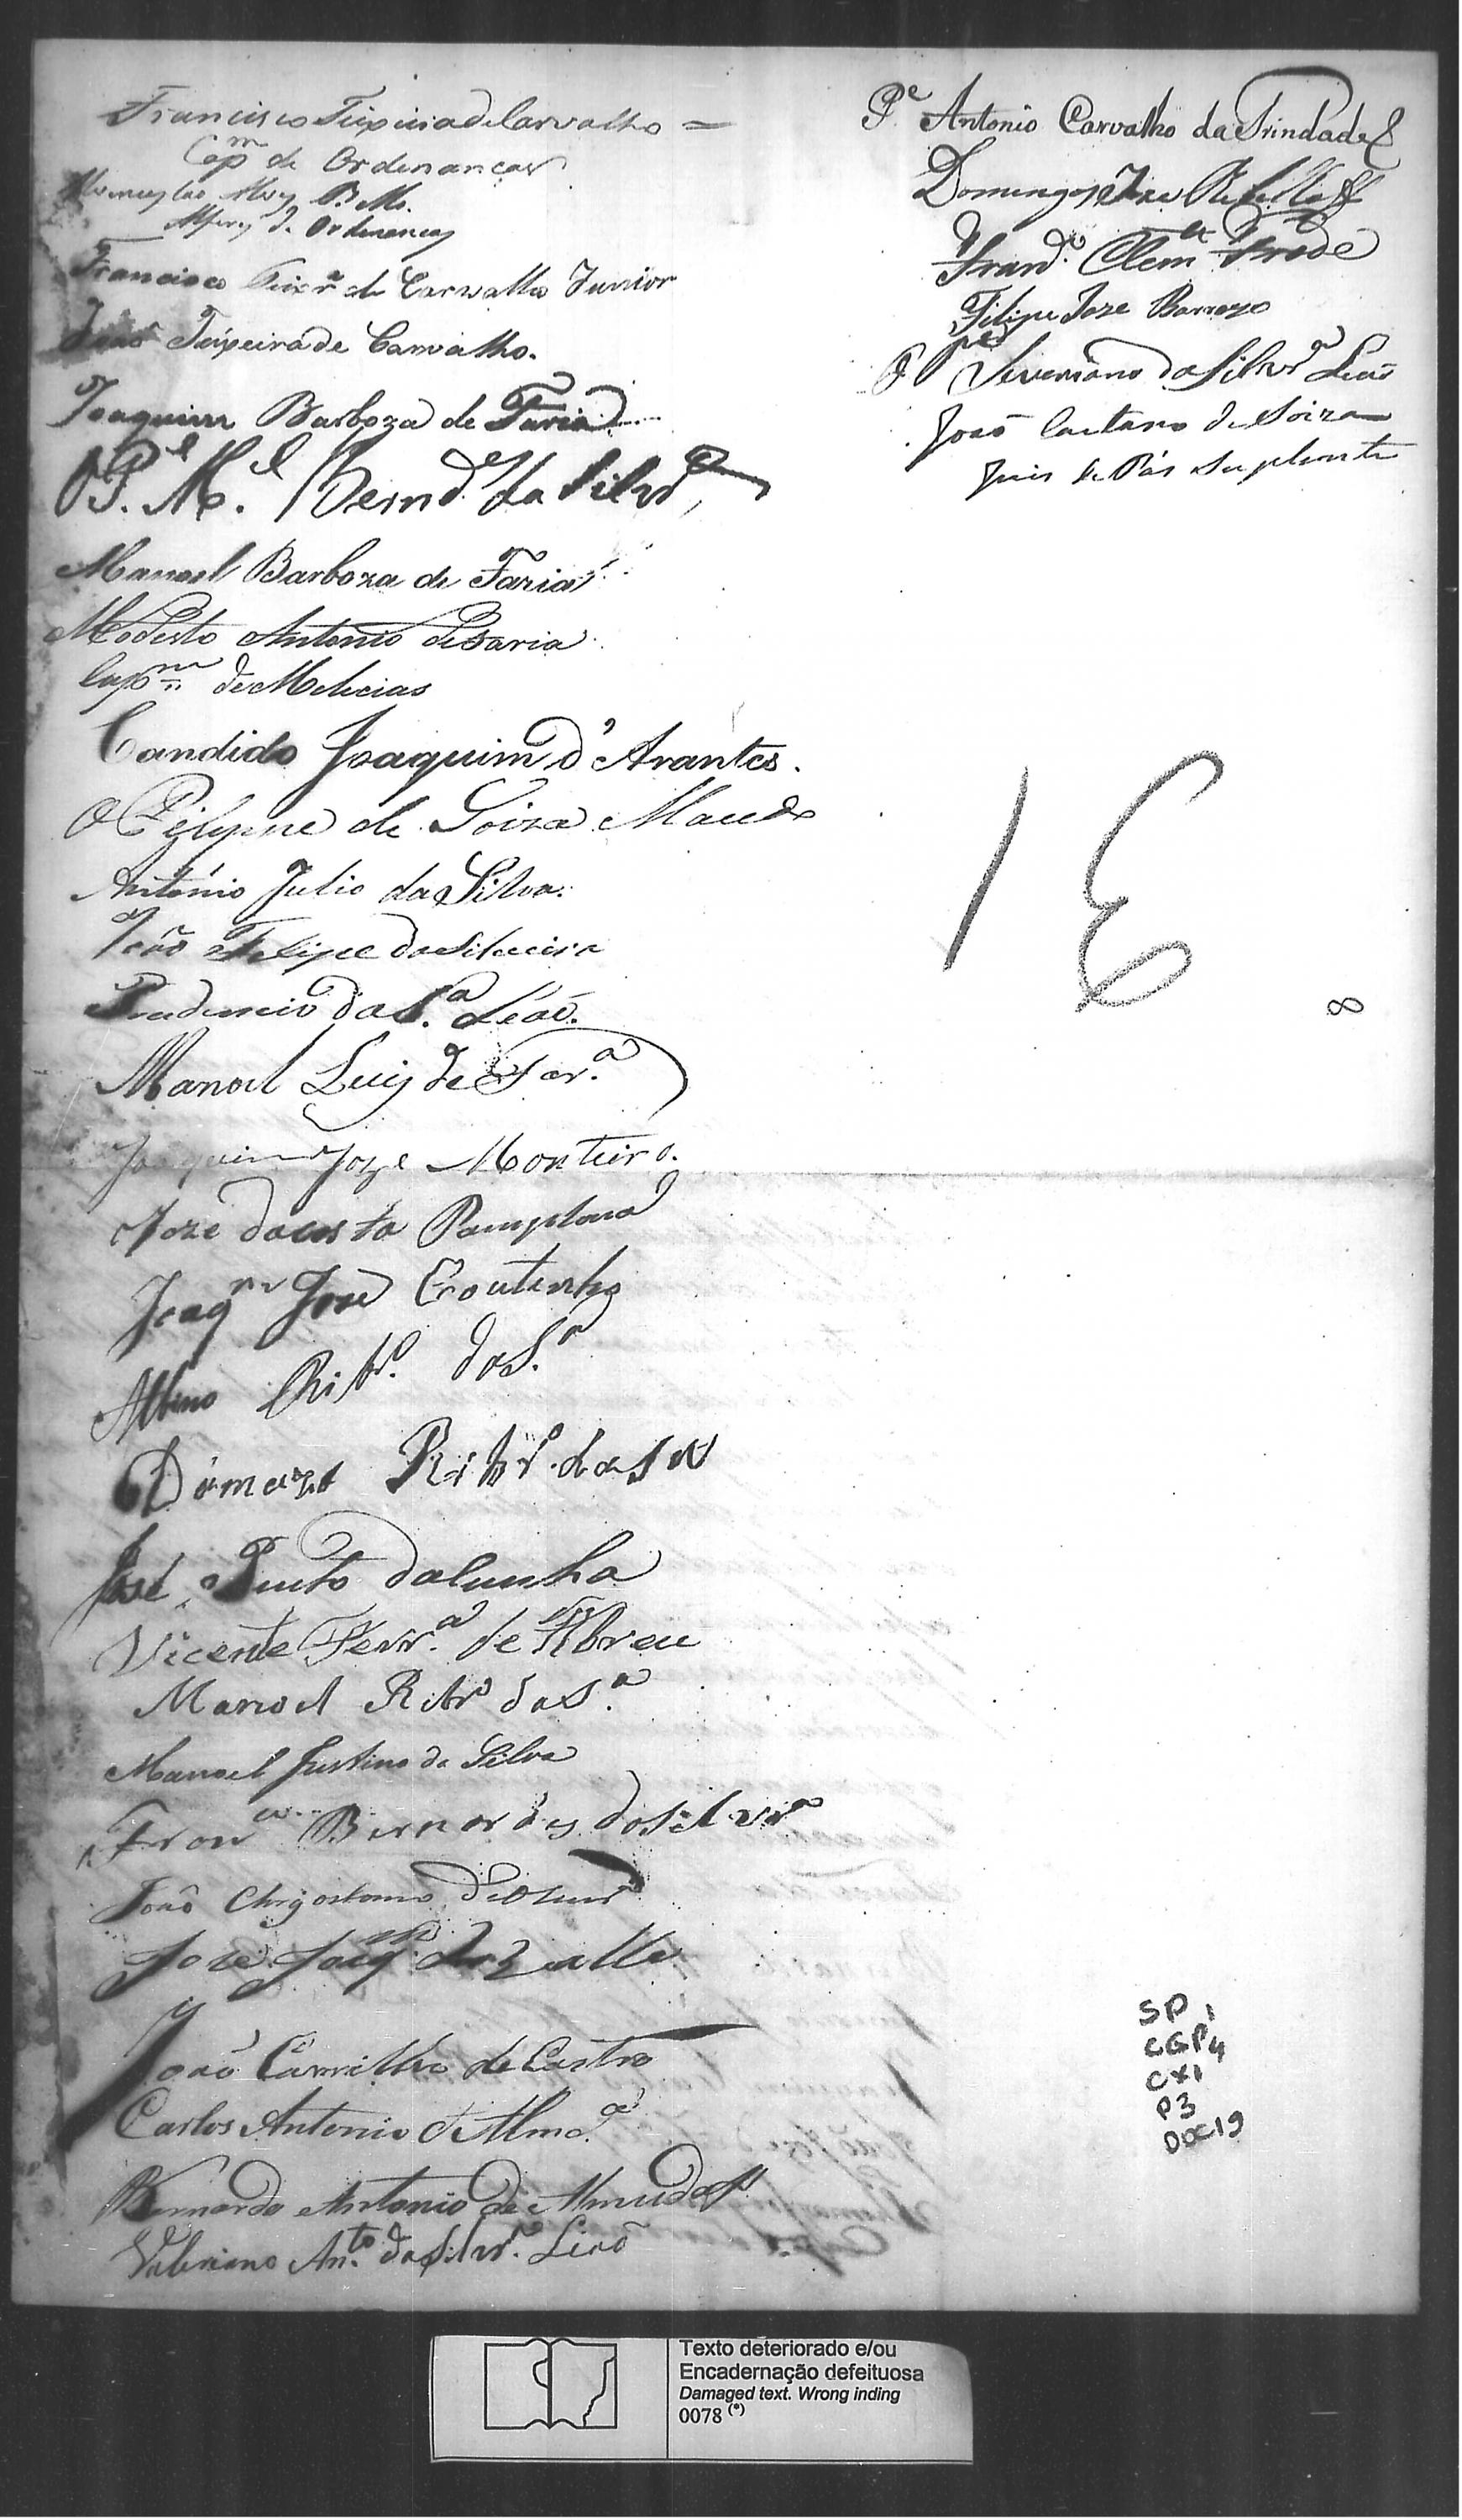 Francisco Teixeira de Carvalho =
Capm de Ordenanças
Alves B. M.
Alferes de Ordenanças
Francisco Teixra de Carvalho Junior
João Teixeira de Carvalho.
Joaquim Barboza de Faria
O P.e M.el Bernd.es da Silvra
Manoel Barboza de Faria
Modesto Antonio de Faria
Capm de Melicias
Candido Joaquim d'Arantes.
O de Soiza Macedo
Antonio Julio da Silva.
João Felipe da Silveira
Prudencio da S.a Leão.
Manoel Luis de Far.a
Joaquim Joze Monteiro.
Joze da costa Pamplona
Joaqm José Coutinho
Albino Ribr.o da S.a
Damazo Ribr.o da Sa
José Pinto da Cunha
Vicente Ferr.a de Abreu
Manoel Ribro da S.a
Manoel Justino da Silva
Franco Bernardes da Silvra
João Chrysostomo
Joze Joaqm do Valle
João Camillo de Castro
Carlos Antonio d'Almd.a
Bernardo Antonio de Almeida
Valeriano An.to da Silvr.a Leão
P.e Antonio Carvalho da Trindade
Domingos Joze Rebello
Frade
Filipe Joze Barrozo
Severiano da Silvra Leão
João Caetano de Soiza
Juis de Pás Suplente
8
SP 1
CGP4
CX1
P3
DOC19
Texto deteriorado e/ou
Encadernação defeituosa
Damaged text. Wrong inding
0078 (*)